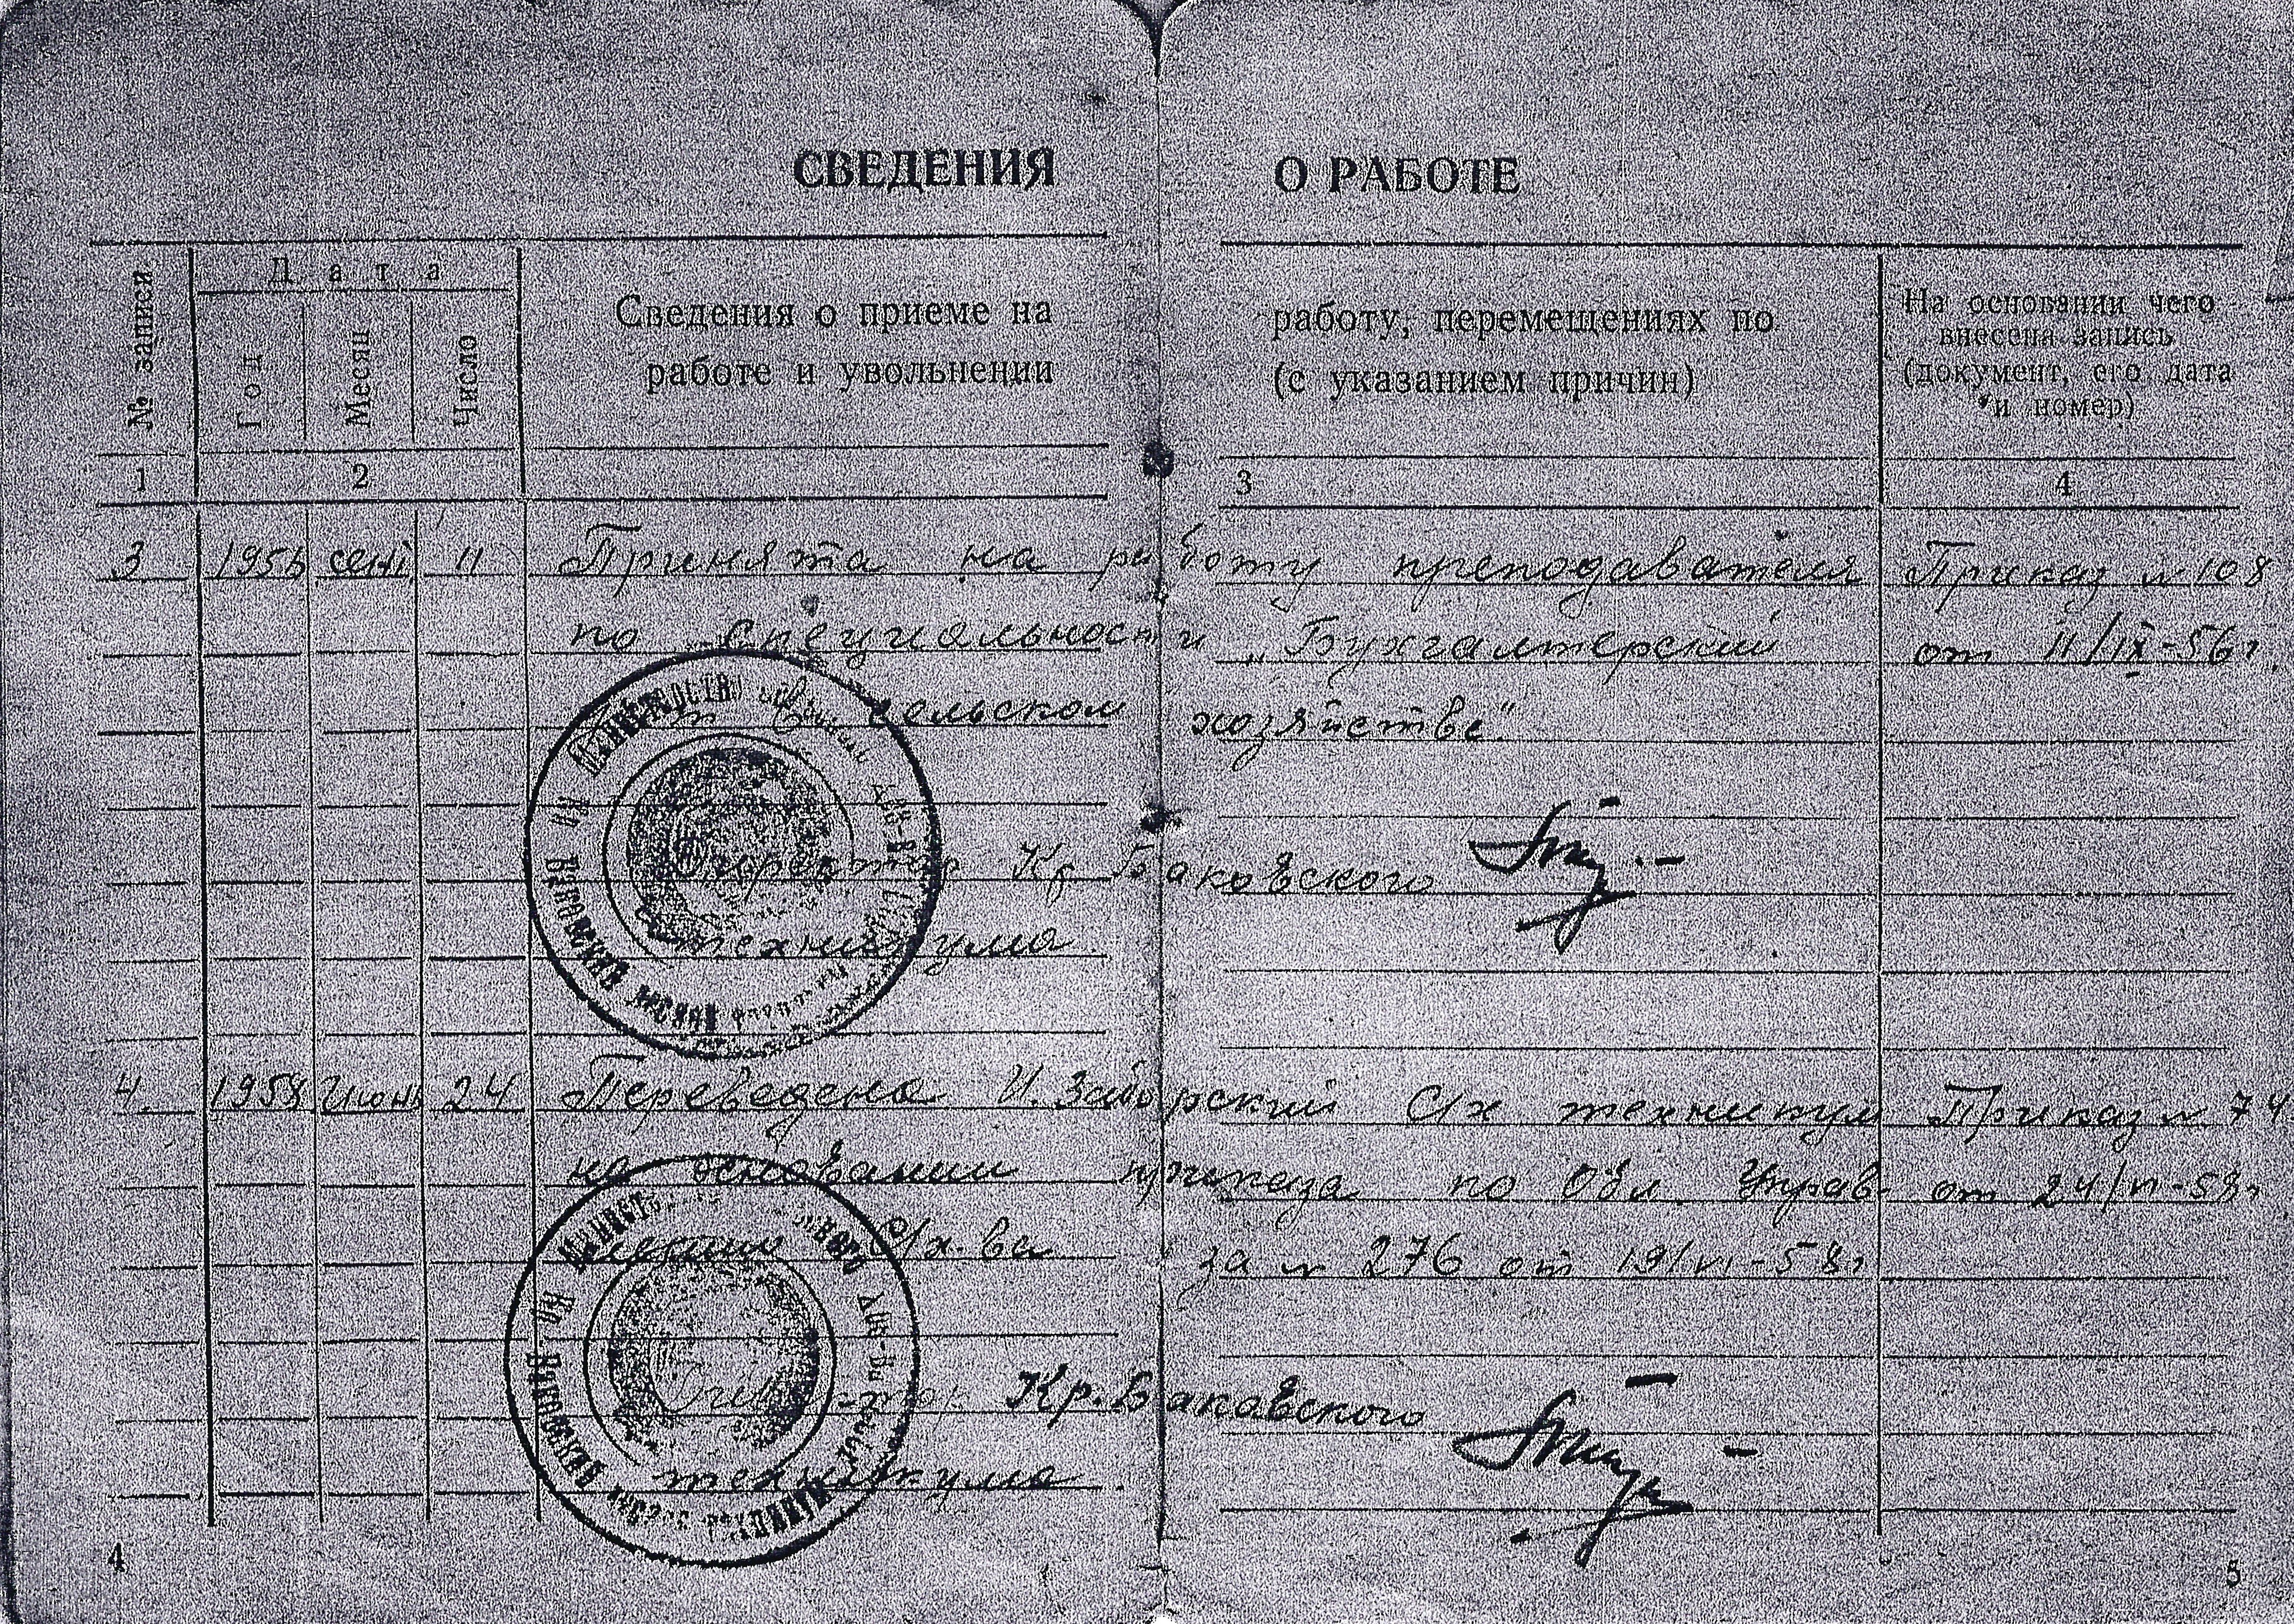 СВЕДЕНИЯ О РАБОТЕ
№ записи
Дата
Год
Месяц
Число
Сведения о приеме на работу, перемещениях по
работе и увольнении (с указанием причин)
На основании чего
внесена запись
(документ, его дата
и номер)
1 2 3 4
3 1956 сент 11 Принята на работу преподавателя Приказ № 108
по специальности „Бухгалтерский от 11/IX-56г.
сельском хозяйстве"
Директор Кр Баковского
техникума.
4. 1958 Июнь 24 Переведена И. Заборский С/х техникум Приказ № 74
на основании приказа по Обл. Управ- от 24/VI-58г
лению С/х-ва за № 276 от 19/VI-58г
Директор Кр. Баковского
техникума.
4 5